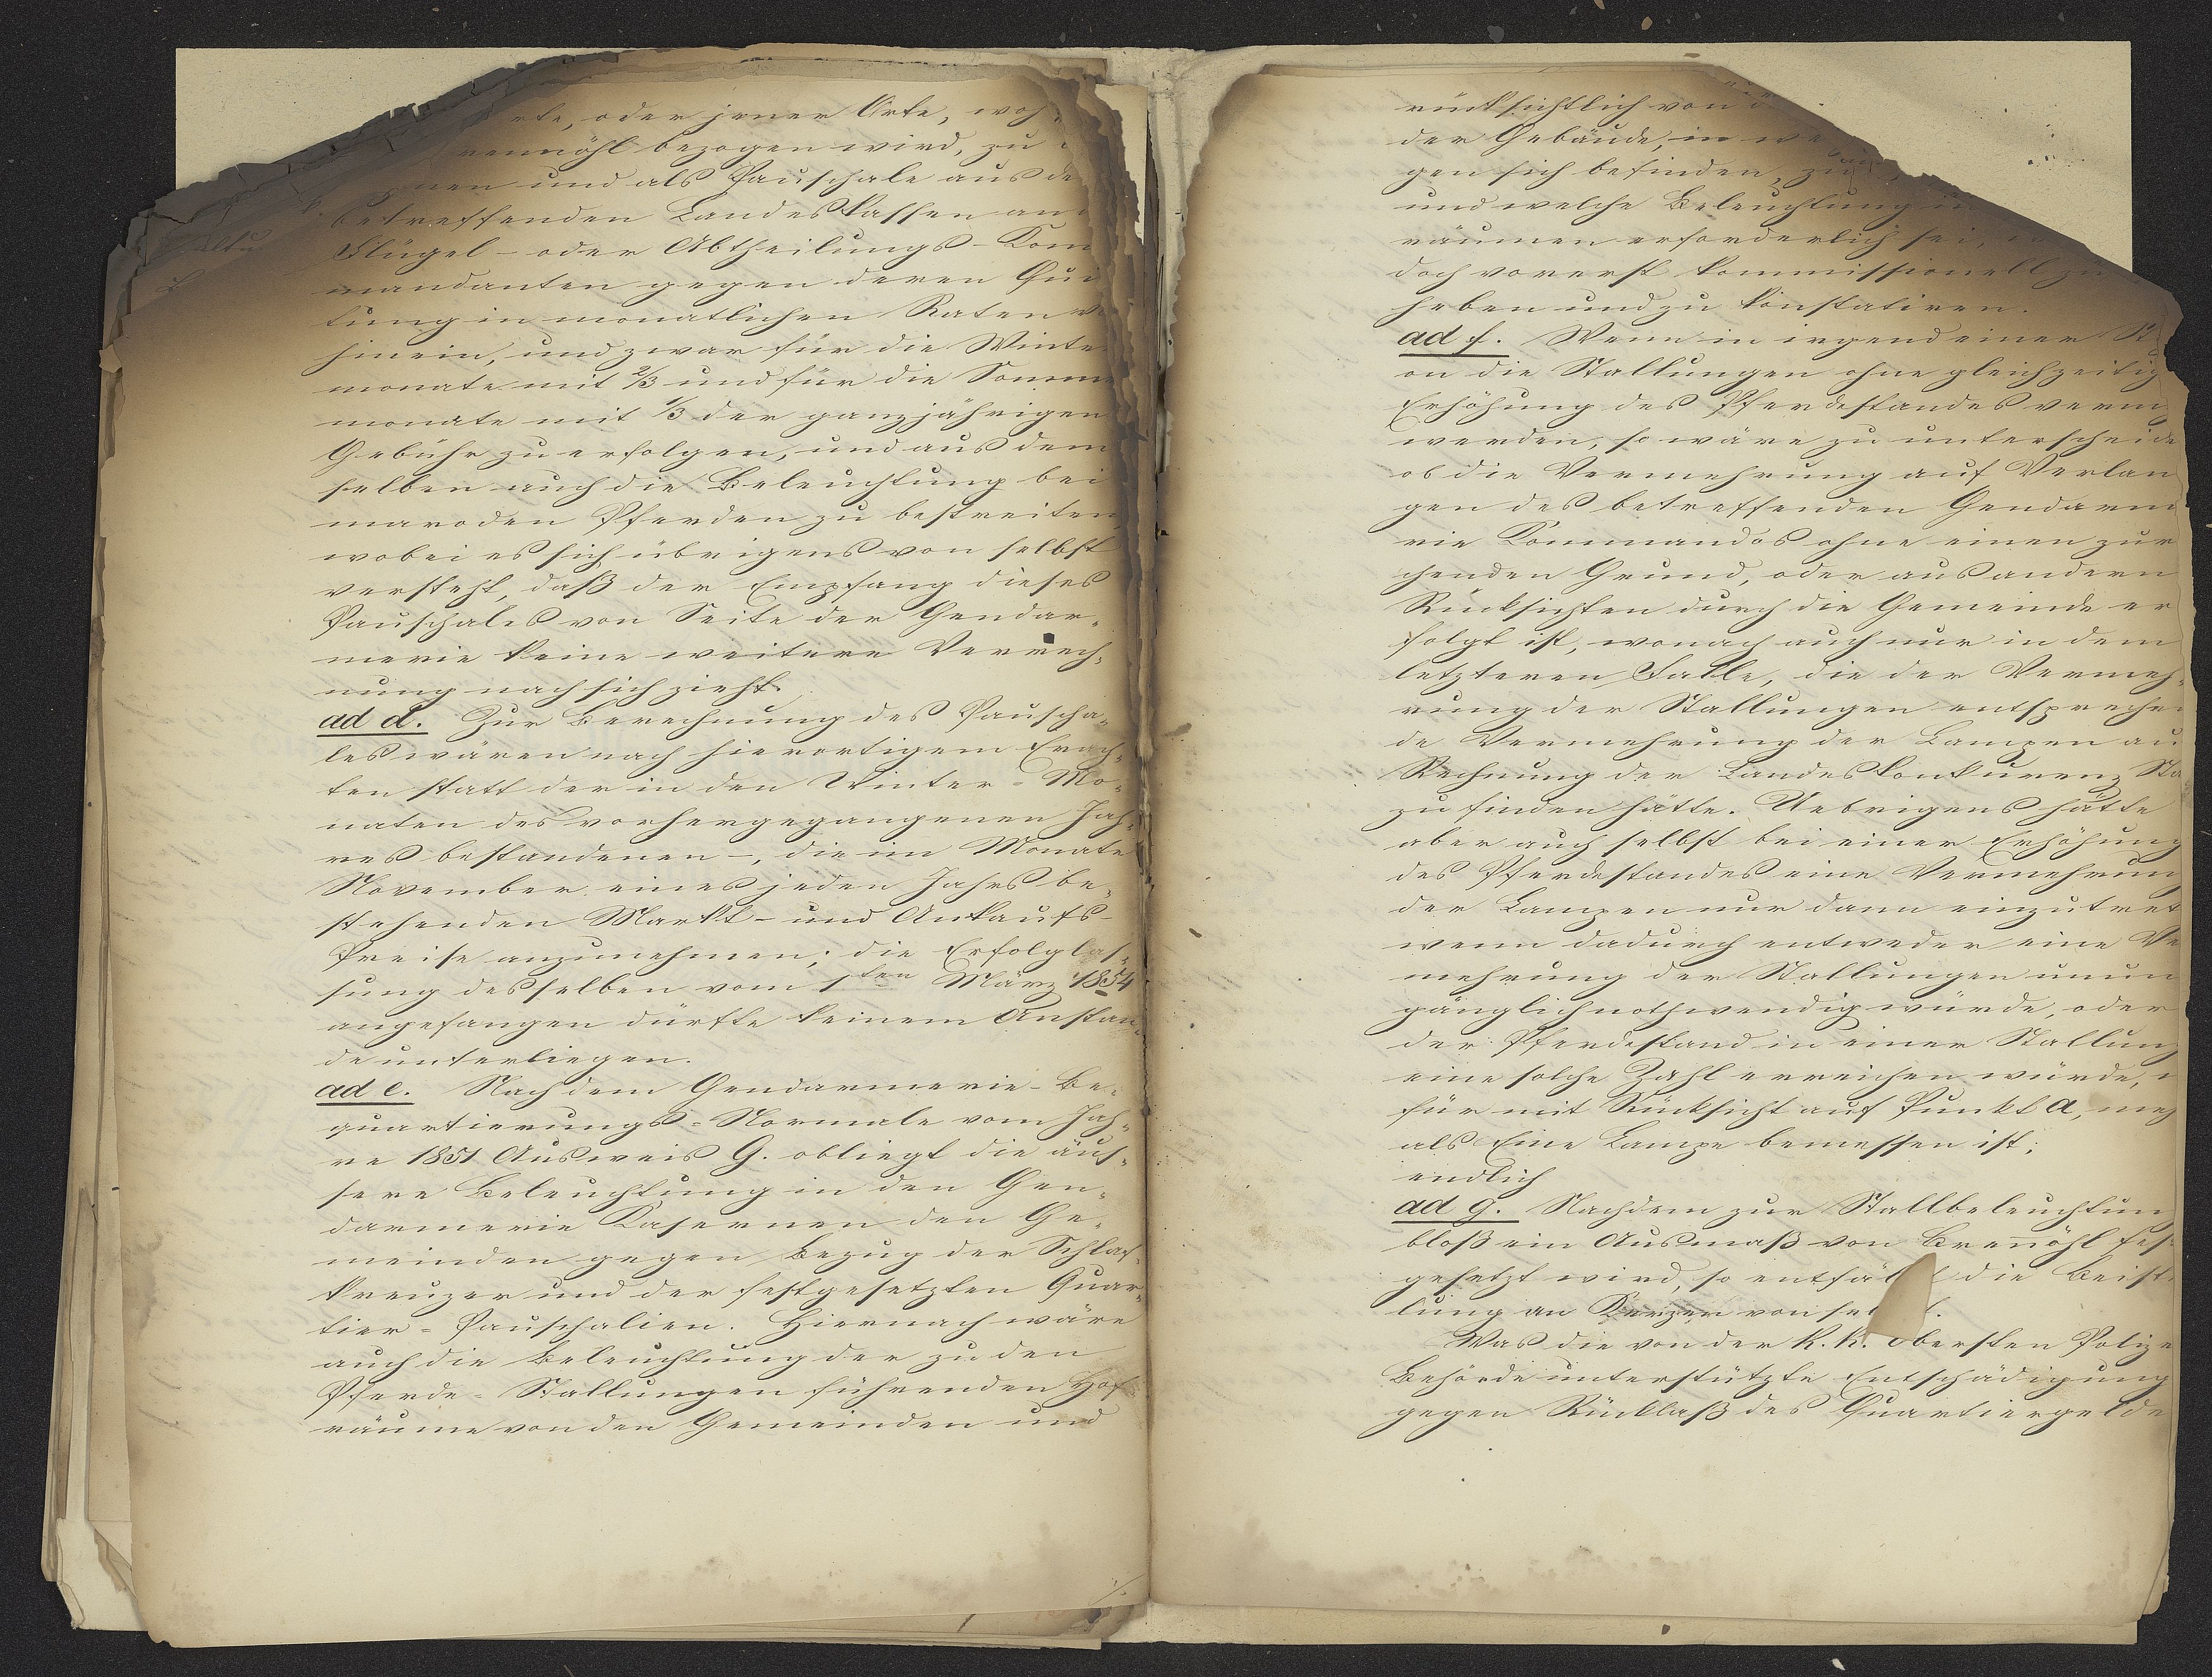 rte, oder jener Orte, woh-
rennöhl bezogen wird, zu
nen und als Pauschale aus de
betreffenden Landeskassen an
Flügel- oder Abtheilungs-Kom
mandanten gegen deren Qui
tung in monatlichen Raten
hinein, und zwar für die Winte
monate mit 2/3 und für die Somme
monate mit 1/3 der ganzjährigen
Gebühr zu erfolgen, und aus dem
selben auch die Beleuchtung bei
maroden Pferden zu bestreiten,
wobei es sich übrigens von selbst
versteht, daß der Empfang dieses
Pauschales von Seite der Gendar-
merie keine weitere Verrech-
nung nach sich zieht.
ad d. Zur Berechnung des Pauscha-
les wären nach hierortigem Erach-
ten statt der in den Winter-Mo-
naten des vorhergegangenen Jah-
res bestandenen -, die im Monate
November eines jeden Jahrs be-
stehenden Markt- und Ankaufs-
Preise anzunehmen; die Erfolglas-
sung desselben vom 1ten März 1854
angefangen dürfte keinem Anstan-
de unterliegen.
ad e. Nach dem Gendarmerie-Be-
quartierungs-Normale vom Jah-
re 1851 Ausweis G. obliegt die äus-
sere Beleuchtung in den Gen-
darmerie Kasernen den Ge-
meinden gegen Bezug der Schlaf-
kreuzer und der festgesetzten Quar-
tier-Pauschalien. Hiernach wäre
auch die Beleuchtung der zu den
Pferde-Stallungen führenden Hof
räume von den Gemeinden und
rücksichtlich von
der Gebäude, in we
gen sich befinden, zu
und welche Beleuchtung in
räumen erforderlich sei,
doch vorerst kommissionell zu
heben und zu konstatiren.
ad f. Wenn in irgend einer St
on die Stallungen ohne gleichzeitig
Erhöhung des Pferdestandes verm
werden, so wäre zu unterscheide
ob die Vermehrung auf Verlan
gen des betreffenden Gendarm
rie Kommandos ohne einen zur
chenden Grund, oder aus andern
Rücksichten durch die Gemeinde er
folgt ist, wonach auch nur in dem
letzteren Falle, die der Vermeh-
rung der Stallungen entspreche
de Vermehrung der Lampen au
Rechnung der Landeskonkurenz Sta
zu finden hätte. Uebrigens hätte
aber auch selbst bei einer Erhöhung
des Pferdestandes eine Vermehrun
der Lampen nur dann einzutret
wenn dadurch entweder eine Ve
mehrung der Stallungen unum
gänglich nothwendig würde, oder
der Pferdestand in einer Stallun
eine solche Zahl erreichen würde,
für mit Rücksicht auf Punkt a, meh
als Eine Lampe bemessen ist;
endlich
ad g. Nachdem zur Stallbeleuchtun
bloß ein Ausmaß von Breñöhl fes
gesetzt wird, so entfäl die Beist
lung an Kerzen von sel
Was die von der k. k. obersten Polize
Behörde unterstützte Entschädigung
gegen Rücklaß des Quartiergelde